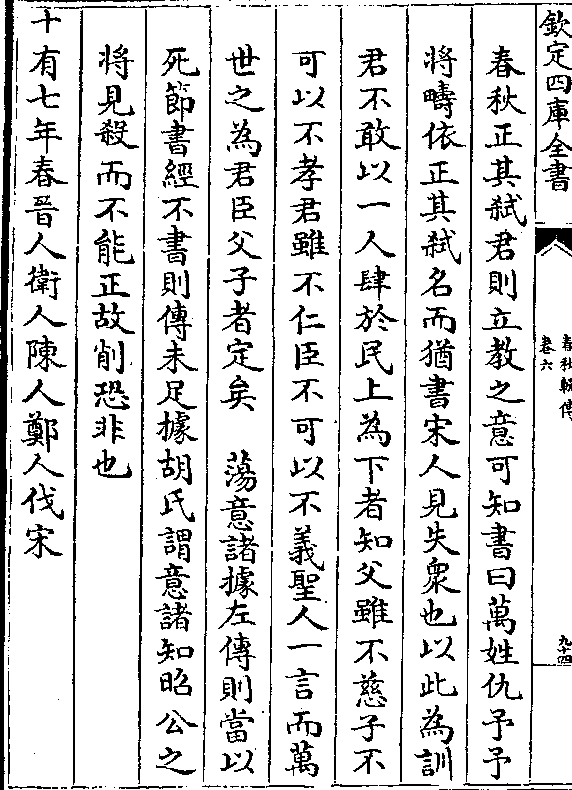 欽定四庫全書
春秋輯傳
卷六
九十四
春秋正其弑君則立教之意可知書曰萬姓仇予予
將疇依正其弑名而猶書宋人見失衆也以此為訓
君不敢以一人肆於民上為下者知父雖不慈子不
可以不孝君雖不仁臣不可以不義聖人一言而萬
世之為君臣父子者定矣　蕩意諸據左傳則當以
死節書經不書則傳未足據胡氏謂意諸知昭公之
將見殺而不能正故削恐非也
十有七年春晉人衛人陳人鄭人伐宋